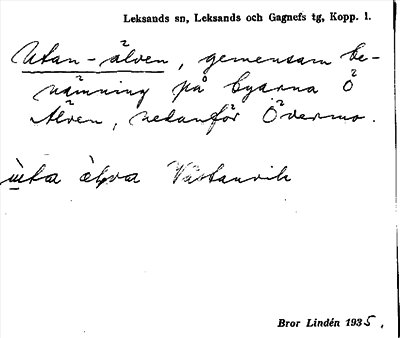 Leksands sn, Leksands och Gagnefs tg, Kopp. l.
Utan-älven, gemensam be-
nämning på byarna Ö
Älven, nedanför Övermo.
ùta älva Västanvik
Bror Lindén 1935.